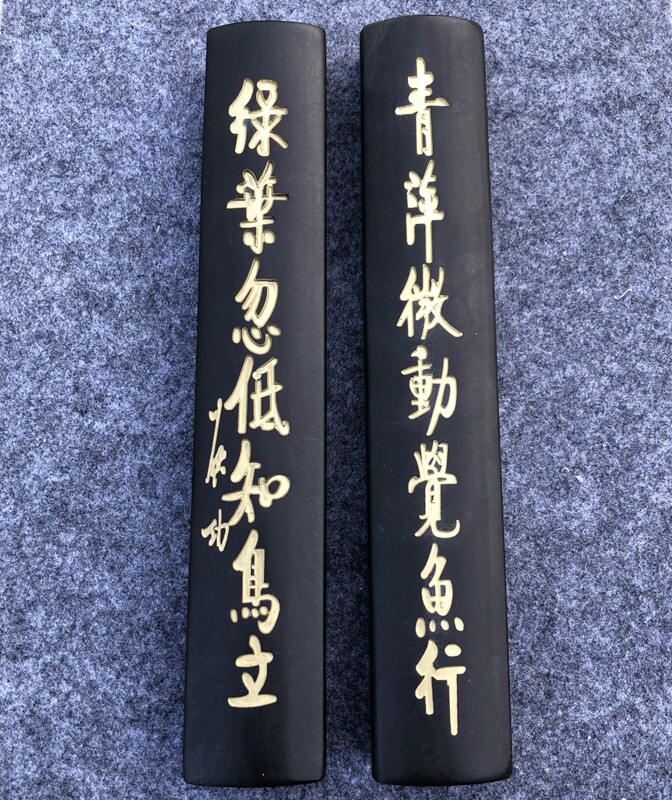 青萍微動覺魚行
綠葉忽低知鳥立